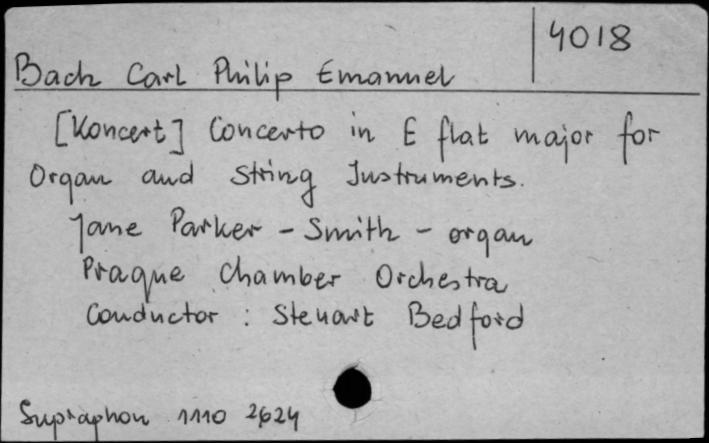 4018
Bach Carl Philip Emanuel
[Koncert] Concerto in E flat major for
Organ and String Instruments.
Jane Parker - Smith - organ
Prague Chamber Orchestra
Conductor : Steuart Bedford
Supraphon 1110 2624